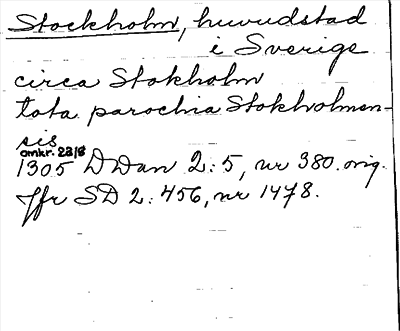 Stockholm, huvudstad
i Sverige
circa Stokholm
tota parochia Stokholmen-
sis
omkr. 23/8
1305 DDan 2:5, nr 380. orig.
Jfr SD 2:456, nr 1478.